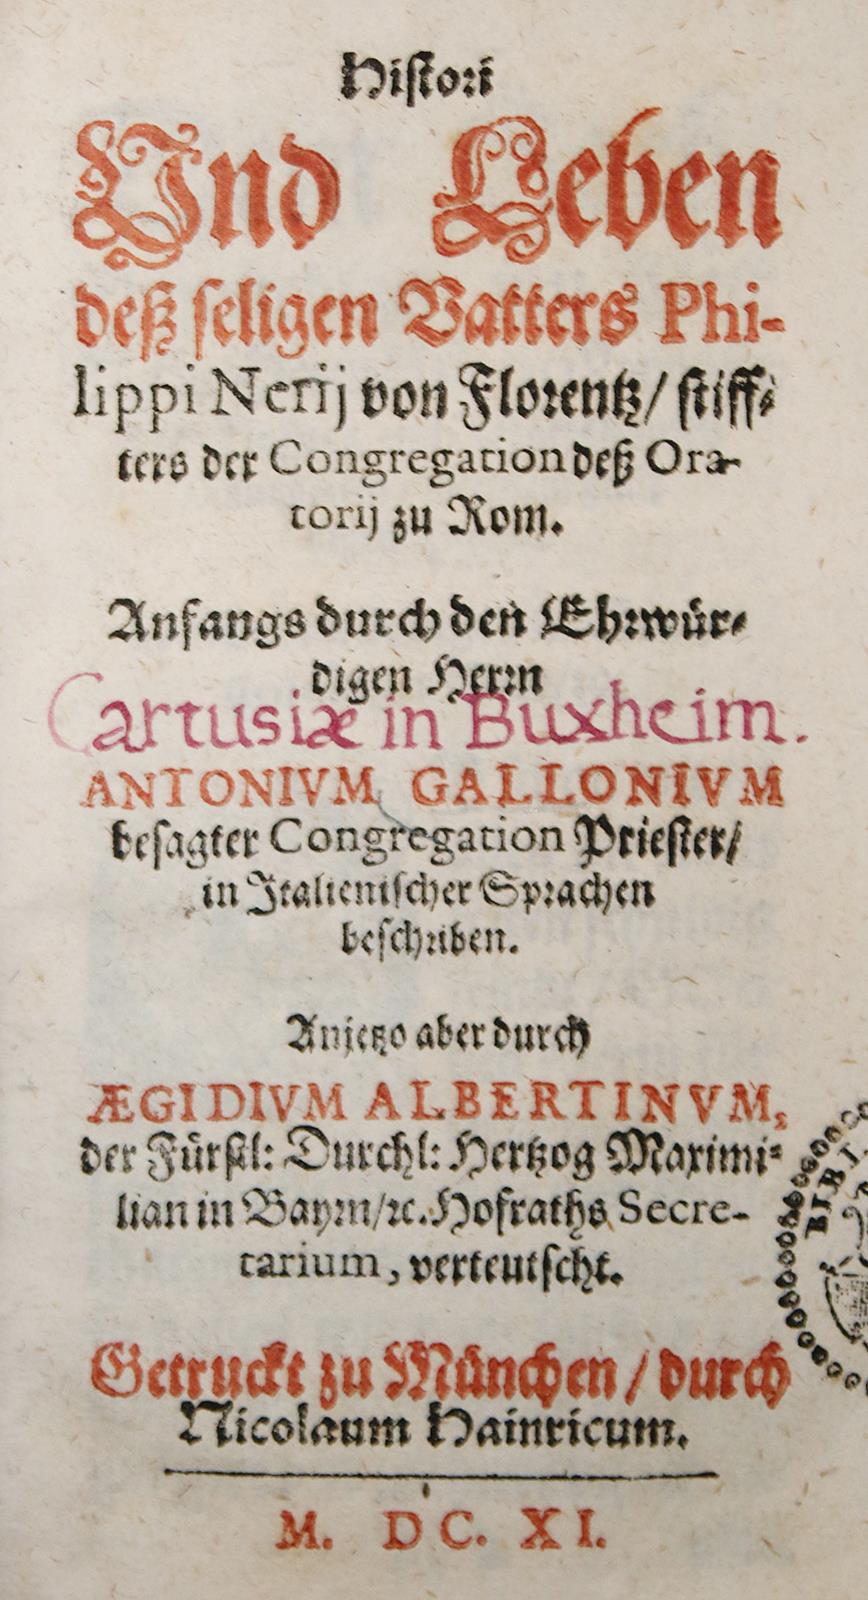 Histori
Und Leben
deß seligen Vatters Phi-
lippi Nerij von Florentz/ stiff-
ters der Congregation deß Ora-
torij zu Rom.
Anfangs durch den Ehrwür-
digen Herrn
Cartusiæ in Buxheim.
ANTONIVM GALLONIVM
besagter Congregation Priester/
in Italienischer Sprachen
beschriben.
Anjetzo aber durch
ÆGIDIVM ALBERTINVM,
der Fürstl: Durchl: Hertzog Maximi-
lian in Bayrn/ꝛc. Hofraths Secre-
tarium, verteutscht.
Getruckt zu München / durch
Nicolaum Hainricum.
M. DC. XI.
BIBL